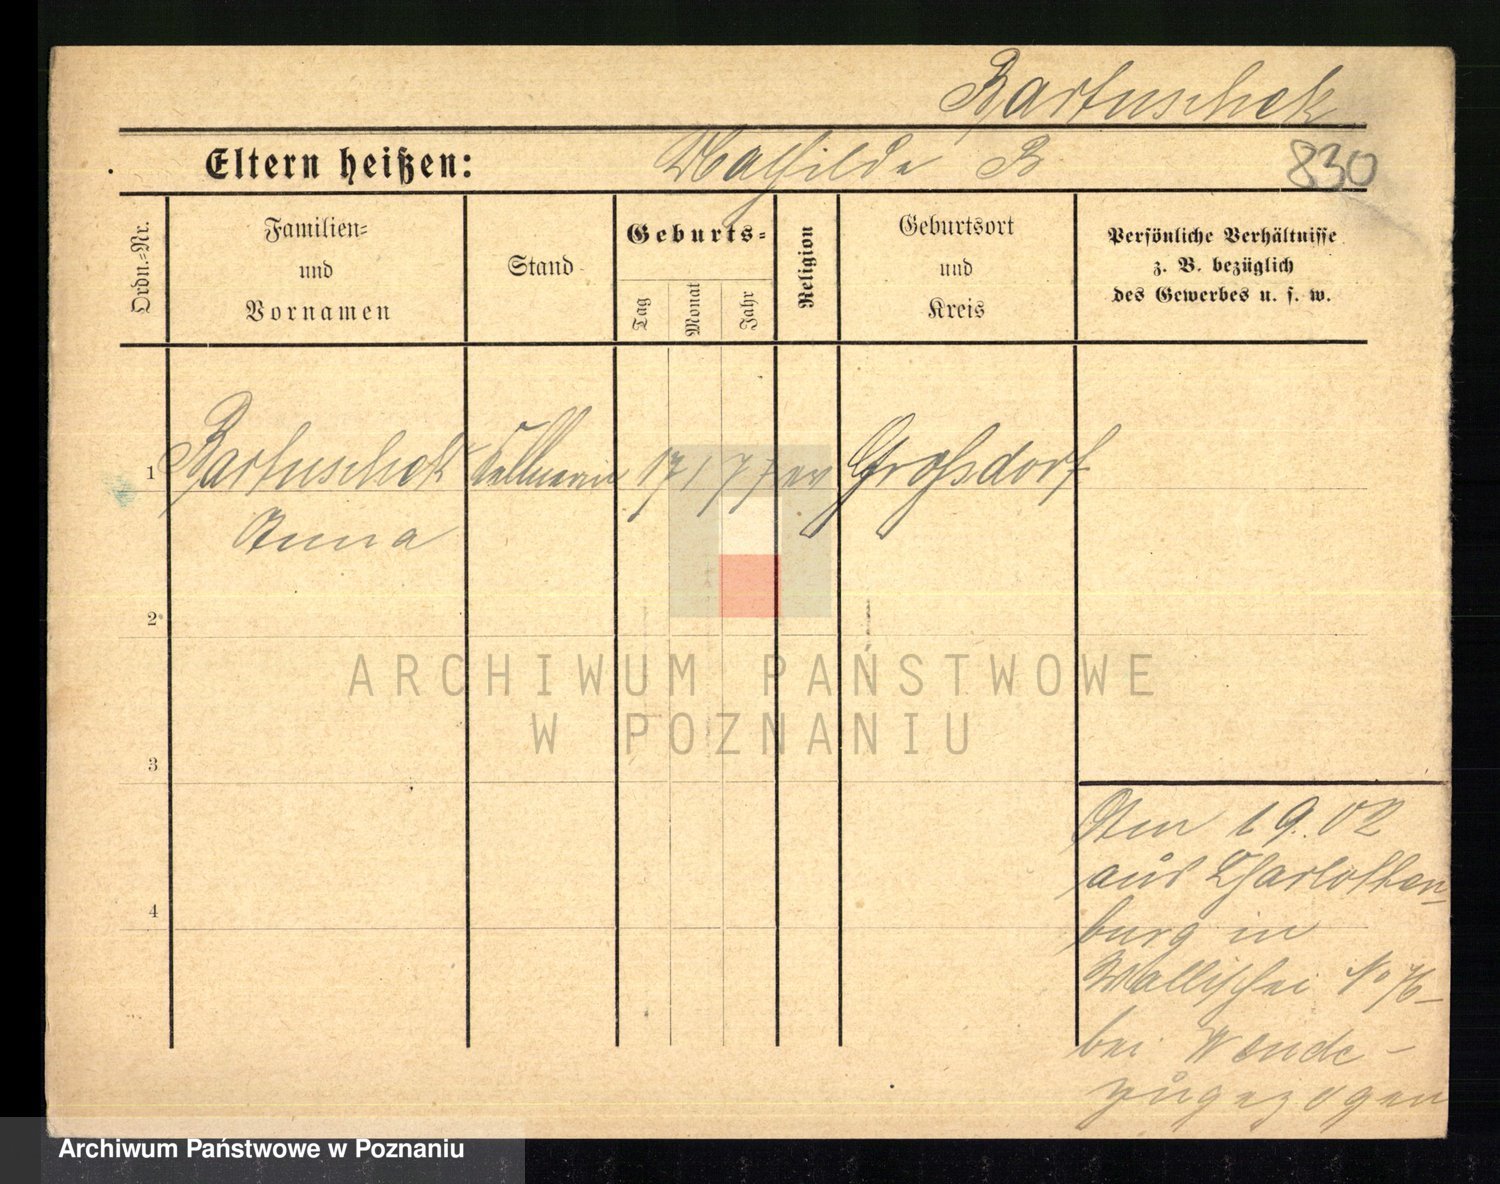 Bartuschek
Eltern heißen: Mathilde B 830
Ordn.-Nr.
Familien-
und
Vornamen
Stand
Geburts-
Tag
Monat
Jahr
Religion
Geburtsort
und
Kreis
Persönliche Verhältnisse
z. B. bezüglich
des Gewerbes u. s. w.
1 Bartuschek Kellnerin 17 1 77 ev Großdorf
Anna
2
3
4
Am 1 9. 02
aus Charlotten-
burg in
Wallischei No
bei Wende -
zugezogen
ARCHIWUM PAŃSTWOWE
W POZNANIU
Archiwum Państwowe w Poznaniu